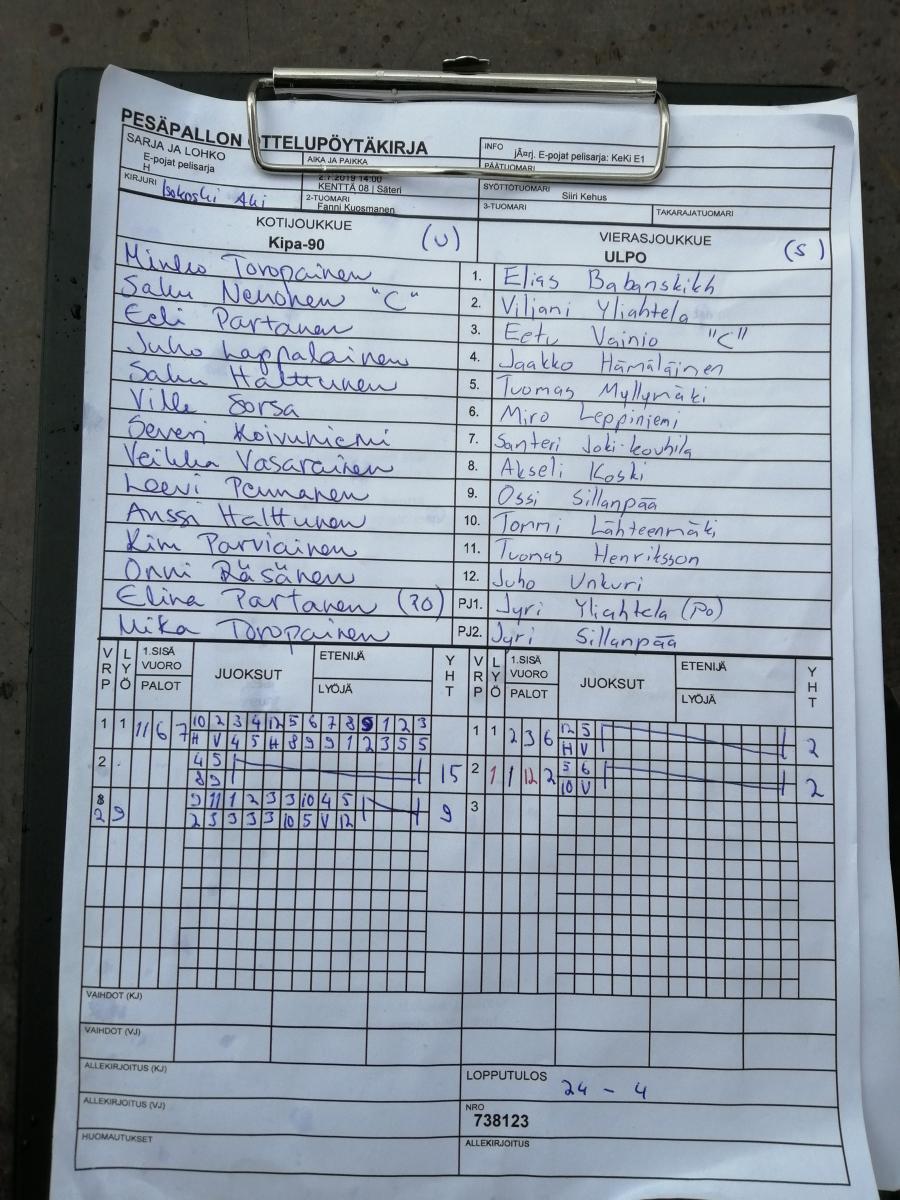 PESÄPALLON OTTELUPÖYTÄKIRJA
SARJA JA LOHKO
E-pojat pelisarja
H
AIKA JA PAIKKA
2.7.2019 14:00
KENTTÄ 08 | Säteri
INFO
jÃ¤rj. E-pojat pelisarja: KeKi E1
PÄÄTUOMARI
KIRJURI
Aki
2-TUOMARI
Fanni Kuosmanen
SYÖTTÖTUOMARI
Siiri Kehus
3-TUOMARI
TAKARAJATUOMARI
KOTIJOUKKUE
Kipa-90
(U)
VIERASJOUKKUE
ULPO
(S)
Minko Toropainen 1. Elias Babanskikh
Saku Nenonen "C" 2. Viljami Yliahtela
Eeli Partanen 3. Eetu Vainio "C"
Juho Lappalainen 4. Jaakko Hämäläinen
Saku Halttunen 5. Tuomas Myllymäki
Ville Sorsa 6. Miro Leppiniemi
Severi Koivuniemi 7. Santeri Joki-kouhila
Veikka Vasarainen 8. Akseli Koski
Leevi Pennanen 9. Ossi Sillanpää
Anssi Halttunen 10. Tommi Lähteenmäki
Kim Parviainen 11. Tuomas Henriksson
Onni Räsänen 12. Juho Unkuri
Elina Partanen (PO) PJ1. Jyri Yliahtela (PO)
Mika Toropainen PJ2. Jyri Sillanpää
VRP LYÖ 1.SISÄ VUORO PALOT JUOKSUT ETENIJÄ LYÖJÄ YHT
VRP LYÖ 1.SISÄ VUORO PALOT JUOKSUT ETENIJÄ LYÖJÄ YHT
1 1 11 6 7 10 2 3 4 12 5 6 7 8 9 1 2 3
H V 4 5 H 8 9 9 1 2 3 5 5
1 1 2 3 6 12 5
H V
2
2 4 5
8 9
15
2 1 1 12 2 5 6
10 V
2
2 9 9 11 1 2 3 3 10 4 5
2 3 3 3 3 10 5 V 12
9
3
VAIHDOT (KJ)
VAIHDOT (VJ)
ALLEKIRJOITUS (KJ)
ALLEKIRJOITUS (VJ)
HUOMAUTUKSET
LOPPUTULOS
24 - 4
NRO
738123
ALLEKIRJOITUS